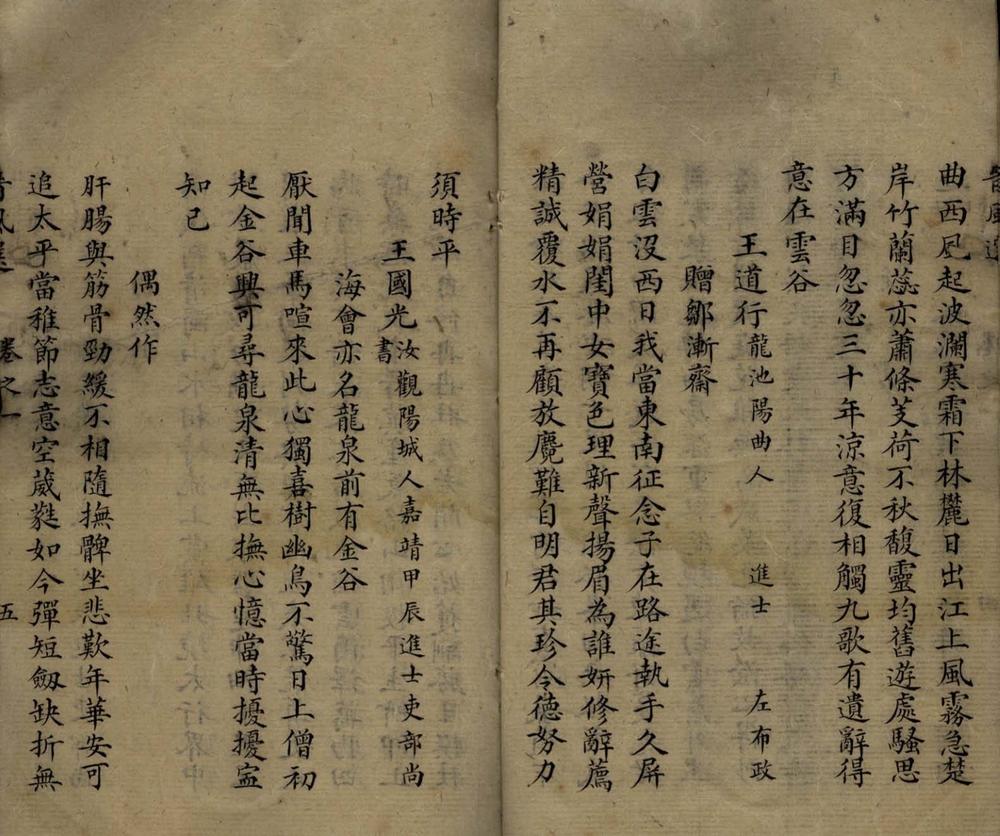 曲西風起波瀾寒霜下林麓日出江上風霧急楚
岸竹蘭蕊亦蕭條芰荷不秋馥靈均舊遊處騷思
方滿目忽忽三十年涼意復相觸九歌有遺辭得
意在雲谷
王道行龍池陽曲人 進士 左布政
贈鄒漸齋
白雲沒西日我當東南征念子在路途執手久屏
營娟娟閨中女寶色理新聲揚眉為誰妍修辭薦
精誠覆水不再顧放麑難自明君其珍令德努力
須時平
王國光汝觀陽城人嘉靖甲辰進士吏部尚
書
海會亦名龍泉前有金谷
厭聞車馬喧來此心獨喜樹幽鳥不驚日上僧初
起金谷興可尋龍泉清無比撫心憶當時擾擾寍
知己
偶然作
肝腸與筋骨勁緩不相隨撫髀坐悲歎年華安可
追太平當稚節志意空葳蕤如今彈短劔缺折無
卷之一 五